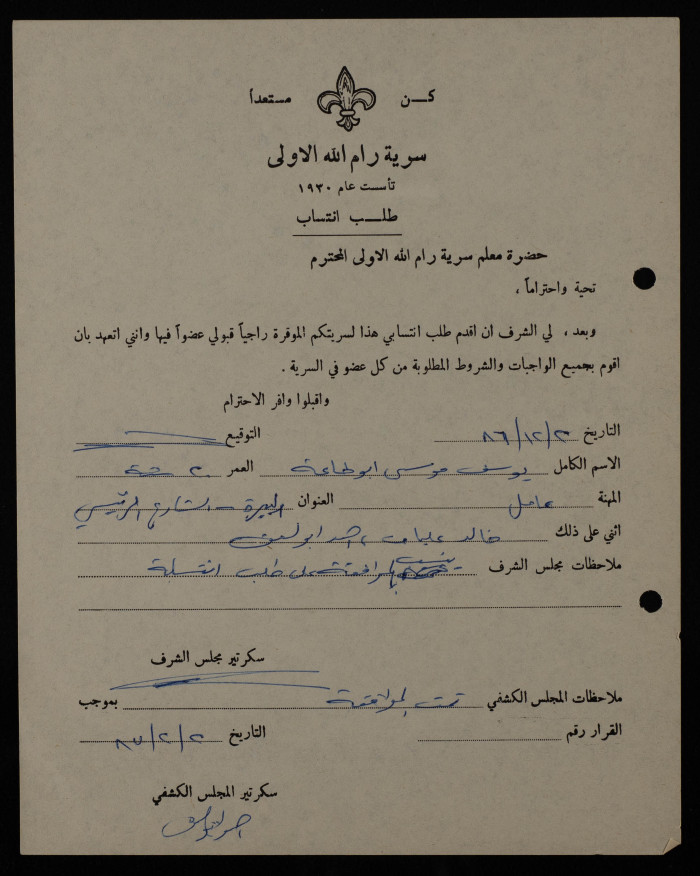 كــن مستعداً
سرية رام الله الاولى
تأسست عام ١٩٣٠
طلــب انتساب
حضرة معلم سرية رام الله الاولى المحترم
تحية واحتراماً ،
وبعد ، لي الشرف ان اقدم طلب انتسابي هذا لسريتكم الموقرة راجياً قبولي عضواً فيها وانني اتعهد بان
اقوم بجميع الواجبات والشروط المطلوبة من كل عضو في السرية .
واقبلوا وافر الاحترام
التاريخ ٨٦/١٢/٢ التوقيع
الاسم الكامل يوسف موسى ابو طاعة العمر ٢٠ سنة
المهنة عامل العنوان البيرة - الشارع الرئيسي
اثني على ذلك خالد
ملاحظات مجلس الشرف الموافقة على طلب
سكرتير مجلس الشرف
ملاحظات المجلس الكشفي تمت الموافقة بموجب
القرار رقم التاريخ ٨٧/٢/٢
سكرتير المجلس الكشفي